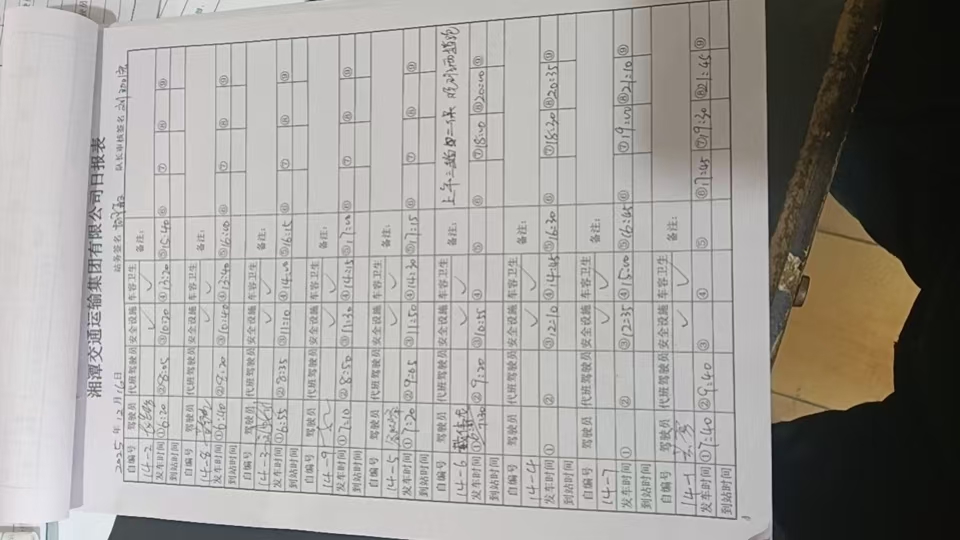 湘潭交通运输集团有限公司日报表
2025年12月16日 站务签名 队长审核签名
自编号 驾驶员 代班驾驶员 安全设施 车容卫生 备注:
14-2 ✓ ✓
发车时间 ①6:20 ②8:05 ③10:20 ④13:20 ⑤15:40 ⑥ ⑦ ⑧ ⑨
到站时间
自编号 驾驶员 代班驾驶员 安全设施 车容卫生 备注:
14-8 ✓ ✓
发车时间 ①6:40 ②8:20 ③10:40 ④13:40 ⑤16:00 ⑥ ⑦ ⑧ ⑨
到站时间
自编号 驾驶员 代班驾驶员 安全设施 车容卫生 备注:
14-3 ✓ ✓
发车时间 ①6:55 ②8:35 ③11:10 ④14:00 ⑤16:15 ⑥ ⑦ ⑧ ⑨
到站时间
自编号 驾驶员 代班驾驶员 安全设施 车容卫生 备注:
14-9 ✓ ✓
发车时间 ①7:10 ②8:50 ③11:30 ④14:15 ⑤17:00 ⑥ ⑦ ⑧ ⑨
到站时间
自编号 驾驶员 代班驾驶员 安全设施 车容卫生 备注:
14-5 ✓ ✓
发车时间 ①7:20 ②9:05 ③11:50 ④14:30 ⑤17:15 ⑥ ⑦ ⑧ ⑨
到站时间
自编号 驾驶员 代班驾驶员 安全设施 车容卫生 备注: 上午三趟
14-6 ✓ ✓
发车时间 ①7:30 ②9:20 ③10:55 ④ ⑤ ⑥ ⑦18:00 ⑧20:00 ⑨
到站时间
自编号 驾驶员 代班驾驶员 安全设施 车容卫生 备注:
14-4 ✓ ✓
发车时间 ① ② ③12:10 ④14:45 ⑤16:30 ⑥ ⑦18:30 ⑧20:35 ⑨
到站时间
自编号 驾驶员 代班驾驶员 安全设施 车容卫生 备注:
14-7 ✓ ✓
发车时间 ① ② ③12:35 ④15:00 ⑤16:45 ⑥ ⑦19:00 ⑧21:10 ⑨
到站时间
自编号 驾驶员 代班驾驶员 安全设施 车容卫生 备注:
14-1 ✓ ✓
发车时间 ①7:40 ②9:40 ③ ④ ⑤ ⑥17:45 ⑦19:30 ⑧21:45 ⑨
到站时间